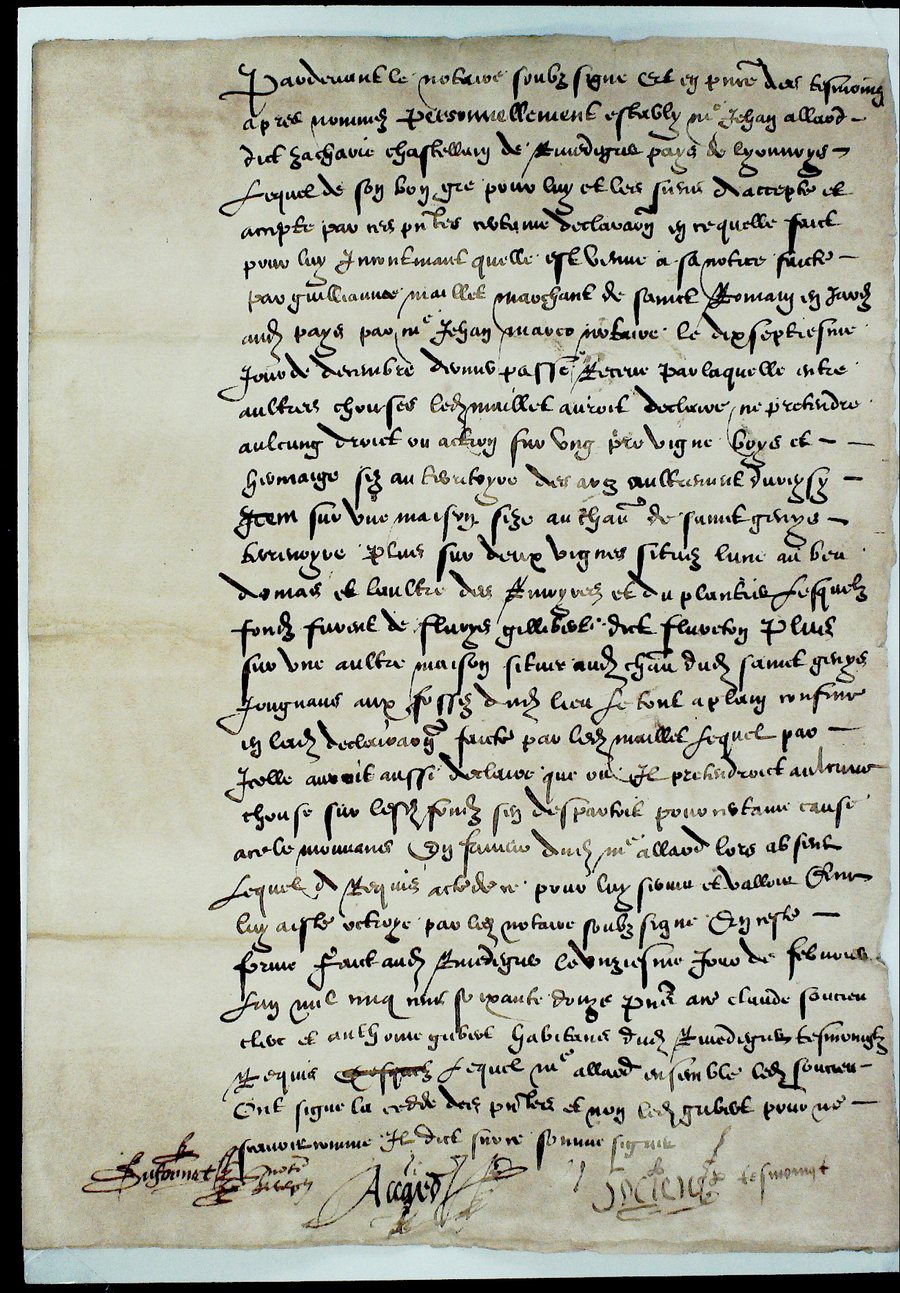 Pardevant le notaire soubz signe Et en pnce des tesmoings
apres nommez Personnellement estably me Jehan allard
dict zacharie chastellain de Rivedegier pays de lyonnoys
Lequel de son bon gre pour luy et les siens d accepte et
accepte par ces pntes certaine declaraon en ce quelle faict
pour luy Incontinant quelle est venue a sa notice faicte
par guilliaume maillet marchant de sainct Romain en Jarez
audz pays par me Jehan marco notaire le dixseptiesme
Jour de decembre dernier passe Receue Par laquelle entre
aultres chouses ledz maillet auroit declaire ne pretendre
aulcung droict ou action sur ung pre vigne boys et
hermaige siz au territoyre des arcz aultrement
Item sur une maison size au chau de sainct genys
terrenoyre Plus sur deux vignes situez lune au
de mas et laultre des et du plantier Lesquelz
fondz furent de fleurys gillibert dict fleureton Plus
sur une aultre maison situee audz chau dudz sainct genys
Joignans aux fossez dudz lieu Le tout a plain confine
en ladz declairaon faicte par ledz maillet Lequel par
Icelle auroit aussi declaire que ou Il pretendroict aulcune
chouse sur lesdz fondz sen despartoit pour certaine cause
a ce le mouvans En faveur dudz me allard lors absent
Lequel a Requis acte de ce pour luy servir et valloir Que
luy a este octroye par ledz notaire soubz signe En ceste
forme Faict audz Rivedegier le unziesme Jour de febvrier
Lan mil cinq cens soixante douze pns a ce claude soucieu
clerc et anthoine gubert habitans dudz Rivedegier tesmoingtz
Requis Lequel me allard ensemble ledz soucieu
Ont signe la cedde des pntes et non ledz gubert pour ne
scavoir comme Il dict sur ce somme signer
notre Allard Socieu tesmoingt